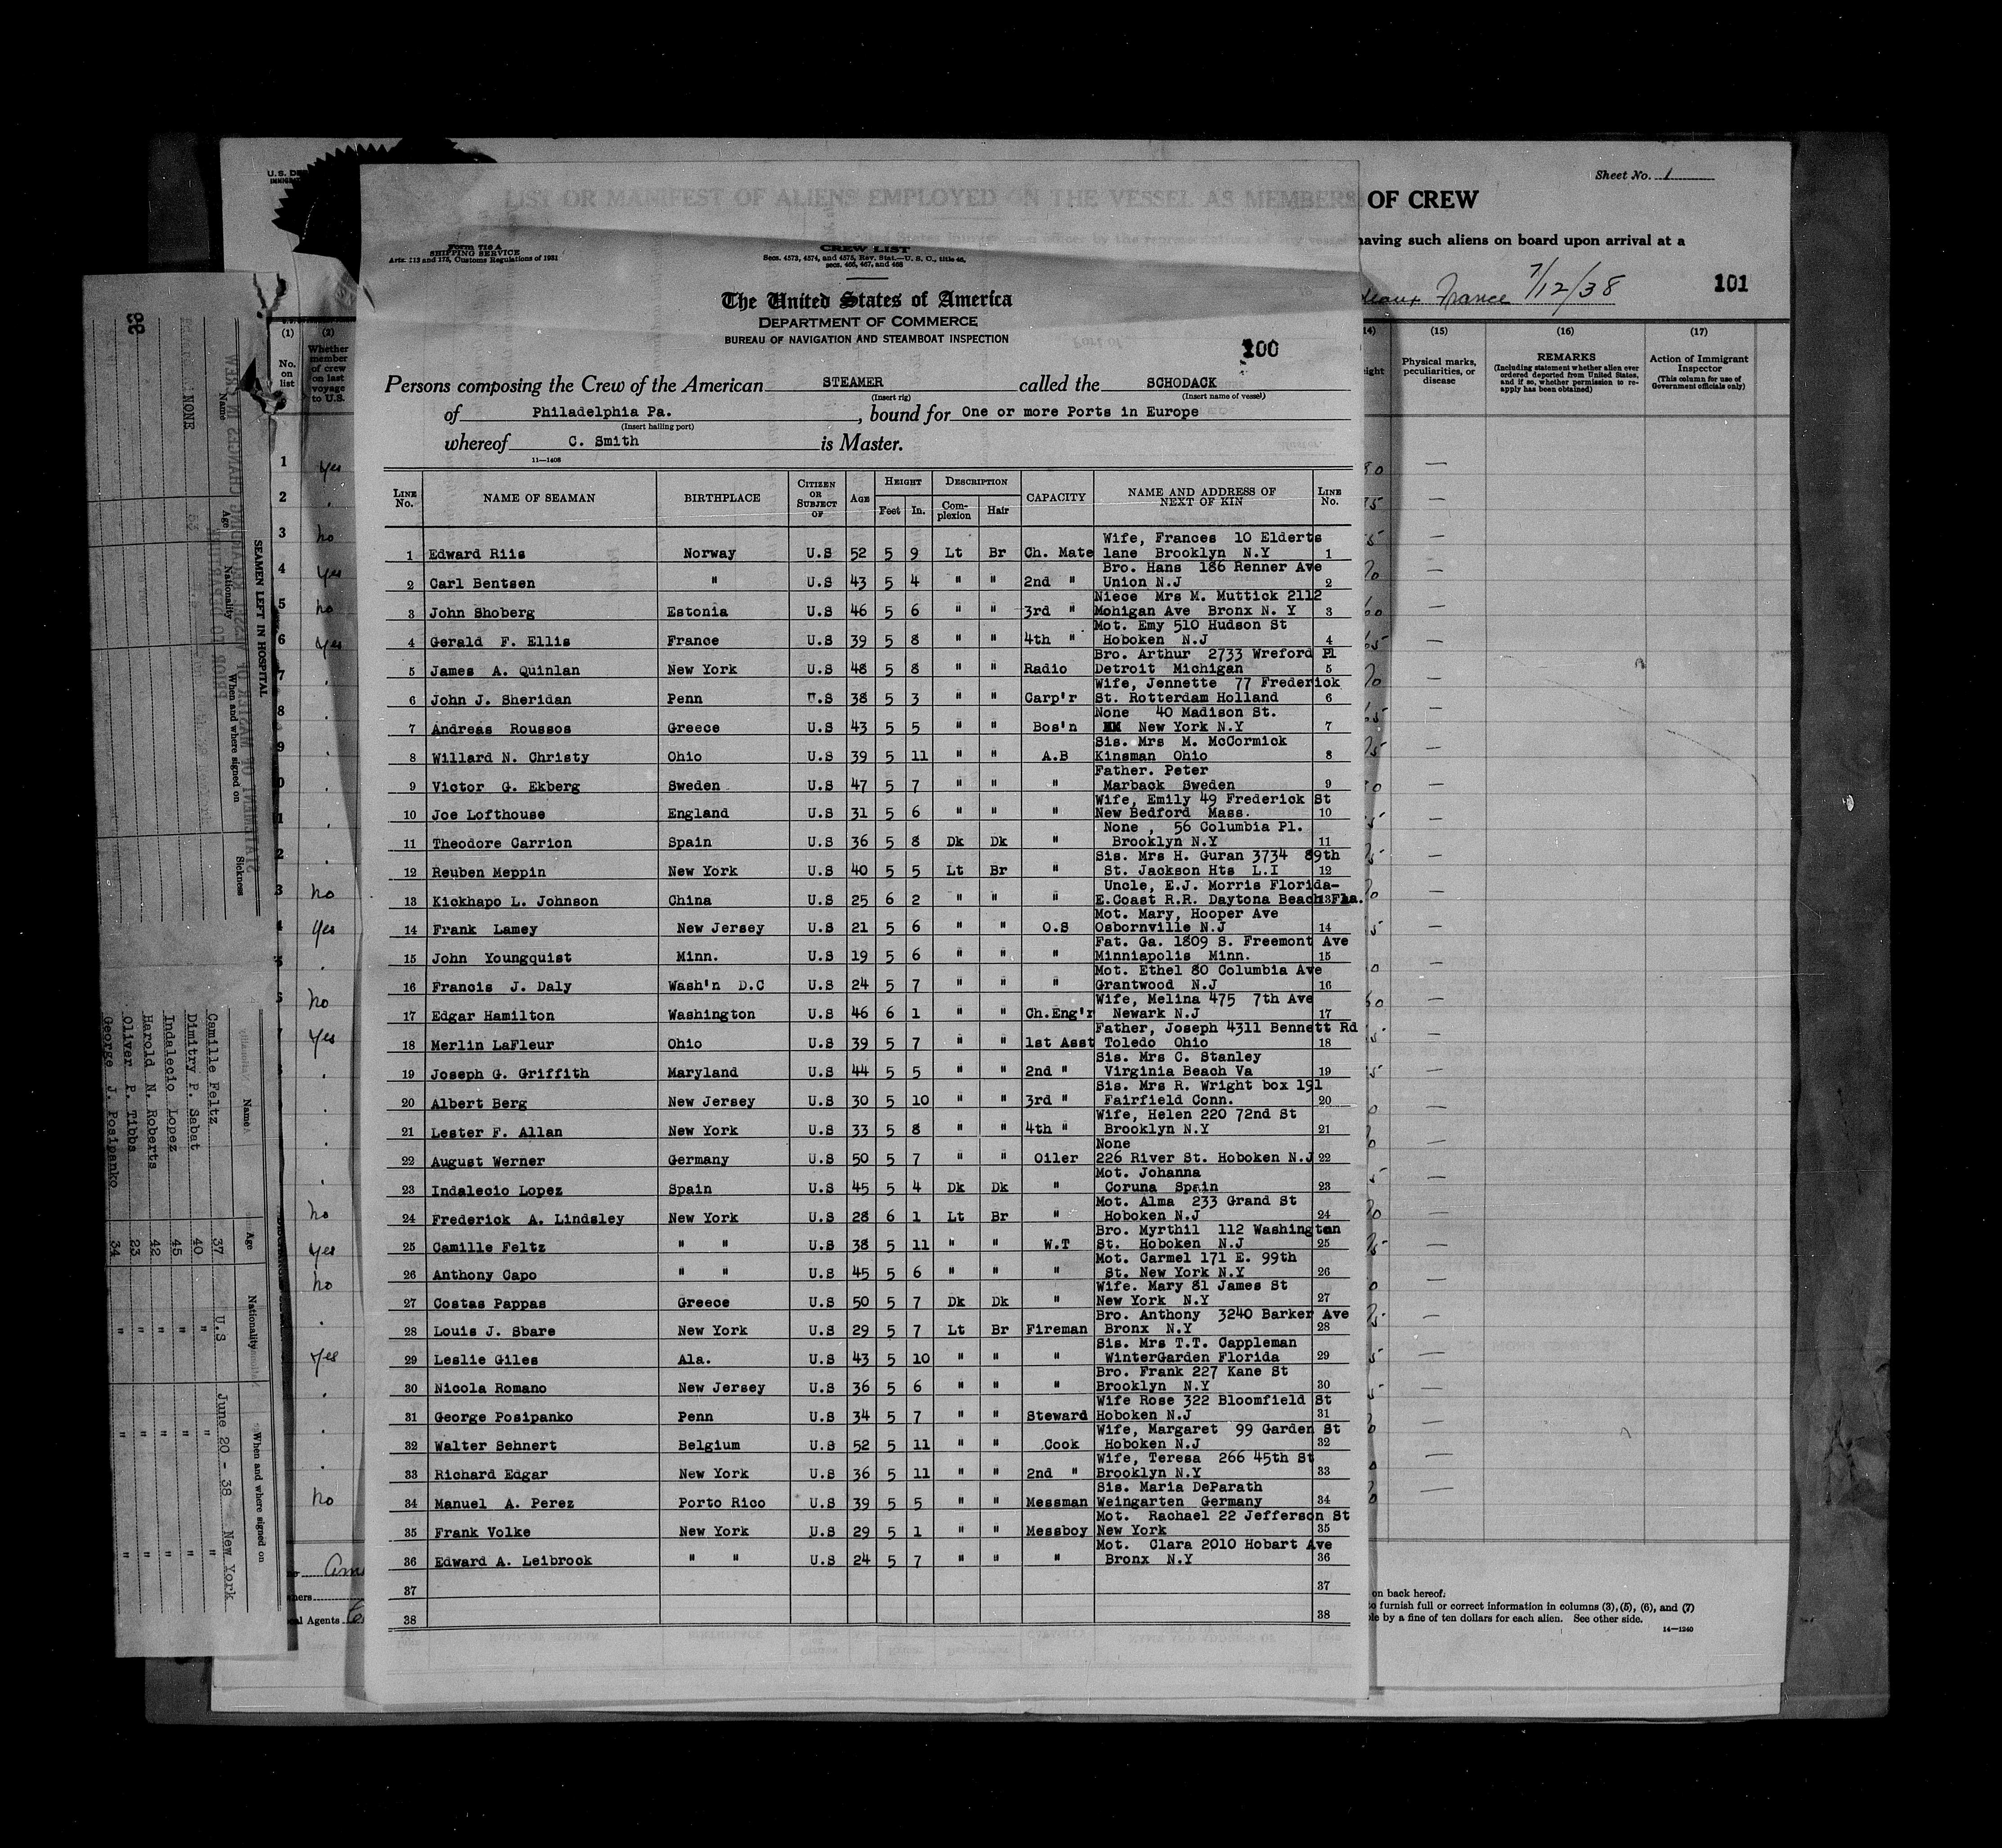 Sheet No. 1
LIST OR MANIFEST OF ALIENS EMPLOYED ON THE VESSEL AS MEMBERS OF CREW
having such aliens on board upon arrival at a
France 7/12/38
101
Form 710 A
SHIPPING SERVICE
Arts. 113 and 175, Customs Regulations of 1931
CREW LIST
Secs. 4573, 4574, and 4575, Rev. Stat.—U. S. C., title 46,
secs. 466, 467, and 468
The United States of America
DEPARTMENT OF COMMERCE
BUREAU OF NAVIGATION AND STEAMBOAT INSPECTION
100
Persons composing the Crew of the American STEAMER called the SCHODACK
(Insert rig) (Insert name of vessel)
of Philadelphia Pa. , bound for One or more Ports in Europe
(Insert hailing port)
whereof C. Smith is Master.
11—1408
LINE No. NAME OF SEAMAN BIRTHPLACE CITIZEN OR SUBJECT OF AGE HEIGHT Feet In. DESCRIPTION Complexion Hair CAPACITY NAME AND ADDRESS OF NEXT OF KIN LINE No.
Wife, Frances 10 Elderts
1 Edward Riis Norway U.S 52 5 9 Lt Br Ch. Mate lane Brooklyn N.Y 1
Bro. Hans 186 Renner Ave
2 Carl Bentsen " U.S 43 5 4 " " 2nd " Union N.J 2
Niece Mrs M. Muttick 2112
3 John Shoberg Estonia U.S 46 5 6 " " 3rd " Mohigan Ave Bronx N. Y 3
Mot. Emy 510 Hudson St
4 Gerald F. Ellis France U.S 39 5 8 " " 4th " Hoboken N.J 4
Bro. Arthur 2733 Wreford Pl
5 James A. Quinlan New York U.S 48 5 8 " " Radio Detroit Michigan 5
Wife, Jennette 77 Frederick
6 John J. Sheridan Penn U.S 38 5 3 " " Carp'r St. Rotterdam Holland 6
None 40 Madison St.
7 Andreas Roussos Greece U.S 43 5 5 " " Bos'n New York N.Y 7
Sis. Mrs M. McCormick
8 Willard N. Christy Ohio U.S 39 5 11 " " A.B Kinsman Ohio 8
Father. Peter
9 Victor G. Ekberg Sweden U.S 47 5 7 " " " Marback Sweden 9
Wife, Emily 49 Frederick St
10 Joe Lofthouse England U.S 31 5 6 " " " New Bedford Mass. 10
None , 56 Columbia Pl.
11 Theodore Carrion Spain U.S 36 5 8 Dk Dk " Brooklyn N.Y 11
Sis. Mrs H. Guran 3734 89th
12 Reuben Meppin New York U.S 40 5 5 Lt Br " St. Jackson Hts L.I 12
Uncle, E.J. Morris Florida-
13 Kickhapo L. Johnson China U.S 25 6 2 " " " E.Coast R.R. Daytona Beach Fla. 13
Mot. Mary, Hooper Ave
14 Frank Lamey New Jersey U.S 21 5 6 " " O.S Osbornville N.J 14
Fat. Ga. 1809 S. Freemont Ave
15 John Youngquist Minn. U.S 19 5 6 " " " Minniapolis Minn. 15
Mot. Ethel 80 Columbia Ave
16 Francis J. Daly Wash'n D.C U.S 24 5 7 " " " Grantwood N.J 16
Wife, Melina 475 7th Ave
17 Edgar Hamilton Washington U.S 46 6 1 " " Ch.Eng'r Newark N.J 17
Father, Joseph 4311 Bennett Rd
18 Merlin LaFleur Ohio U.S 39 5 7 " " 1st Asst Toledo Ohio 18
Sis. Mrs C. Stanley
19 Joseph G. Griffith Maryland U.S 44 5 5 " " 2nd " Virginia Beach Va 19
Sis. Mrs R. Wright box 191
20 Albert Berg New Jersey U.S 30 5 10 " " 3rd " Fairfield Conn. 20
Wife, Helen 220 72nd St
21 Lester F. Allan New York U.S 33 5 8 " " 4th " Brooklyn N.Y 21
None
22 August Werner Germany U.S 50 5 7 " " Oiler 226 River St. Hoboken N.J 22
Mot. Johanna
23 Indalecio Lopez Spain U.S 45 5 4 Dk Dk " Coruna Spain 23
Mot. Alma 233 Grand St
24 Frederick A. Lindsley New York U.S 28 6 1 Lt Br " Hoboken N.J 24
Bro. Myrthil 112 Washington
25 Camille Feltz " " U.S 38 5 11 " " W.T St. Hoboken N.J 25
Mot. Carmel 171 E. 99th
26 Anthony Capo " " U.S 45 5 6 " " " St. New York N.Y 26
Wife. Mary 81 James St
27 Costas Pappas Greece U.S 50 5 7 Dk Dk " New York N.Y 27
Bro. Anthony 3240 Barker Ave
28 Louis J. Sbare New York U.S 29 5 7 Lt Br Fireman Bronx N.Y 28
Sis. Mrs T.T. Cappleman
29 Leslie Giles Ala. U.S 43 5 10 " " " WinterGarden Florida 29
Bro. Frank 227 Kane St
30 Nicola Romano New Jersey U.S 36 5 6 " " " Brooklyn N.Y 30
Wife Rose 322 Bloomfield St
31 George Posipanko Penn U.S 34 5 7 " " Steward Hoboken N.J 31
Wife, Margaret 99 Garden St
32 Walter Sehnert Belgium U.S 52 5 11 " " Cook Hoboken N.J 32
Wife, Teresa 266 45th St
33 Richard Edgar New York U.S 36 5 11 " " 2nd " Brooklyn N.Y 33
Sis. Maria DeParath
34 Manuel A. Perez Porto Rico U.S 39 5 5 " " Messman Weingarten Germany 34
Mot. Rachael 22 Jefferson St
35 Frank Volke New York U.S 29 5 1 " " Messboy New York 35
Mot. Clara 2010 Hobart Ave
36 Edward A. Leibrock " " U.S 24 5 7 " " " Bronx N.Y 36
37 37
38 38
(15) (16) (17)
Physical marks, peculiarities, or disease
REMARKS
(Including statement whether alien ever ordered deported from United States, and if so, whether permission to reapply has been obtained)
Action of Immigrant Inspector
(This column for use of Government officials only)
on back hereof.
to furnish full or correct information in columns (3), (5), (6), and (7)
by a fine of ten dollars for each alien. See other side.
14—1240
(1) (2)
No. on list
Whether member of crew on last voyage to U.S.
1 yes
2
3 no
4 yes
5 no
6 yes
7
8
33
SEAMEN LEFT IN HOSPITAL
Name Age Nationality When and where signed on Sickness
NONE
Name Age Nationality When and where signed on
Camille Feltz 37 U.S June 20 - 38 New York
Dimitry P. Sabat 40 " " "
Indalecio Lopez 45 " " "
Harold N. Roberts 42 " " "
Oliver P. Tibbs 23 " " "
George J. Posipanko 34 " " "